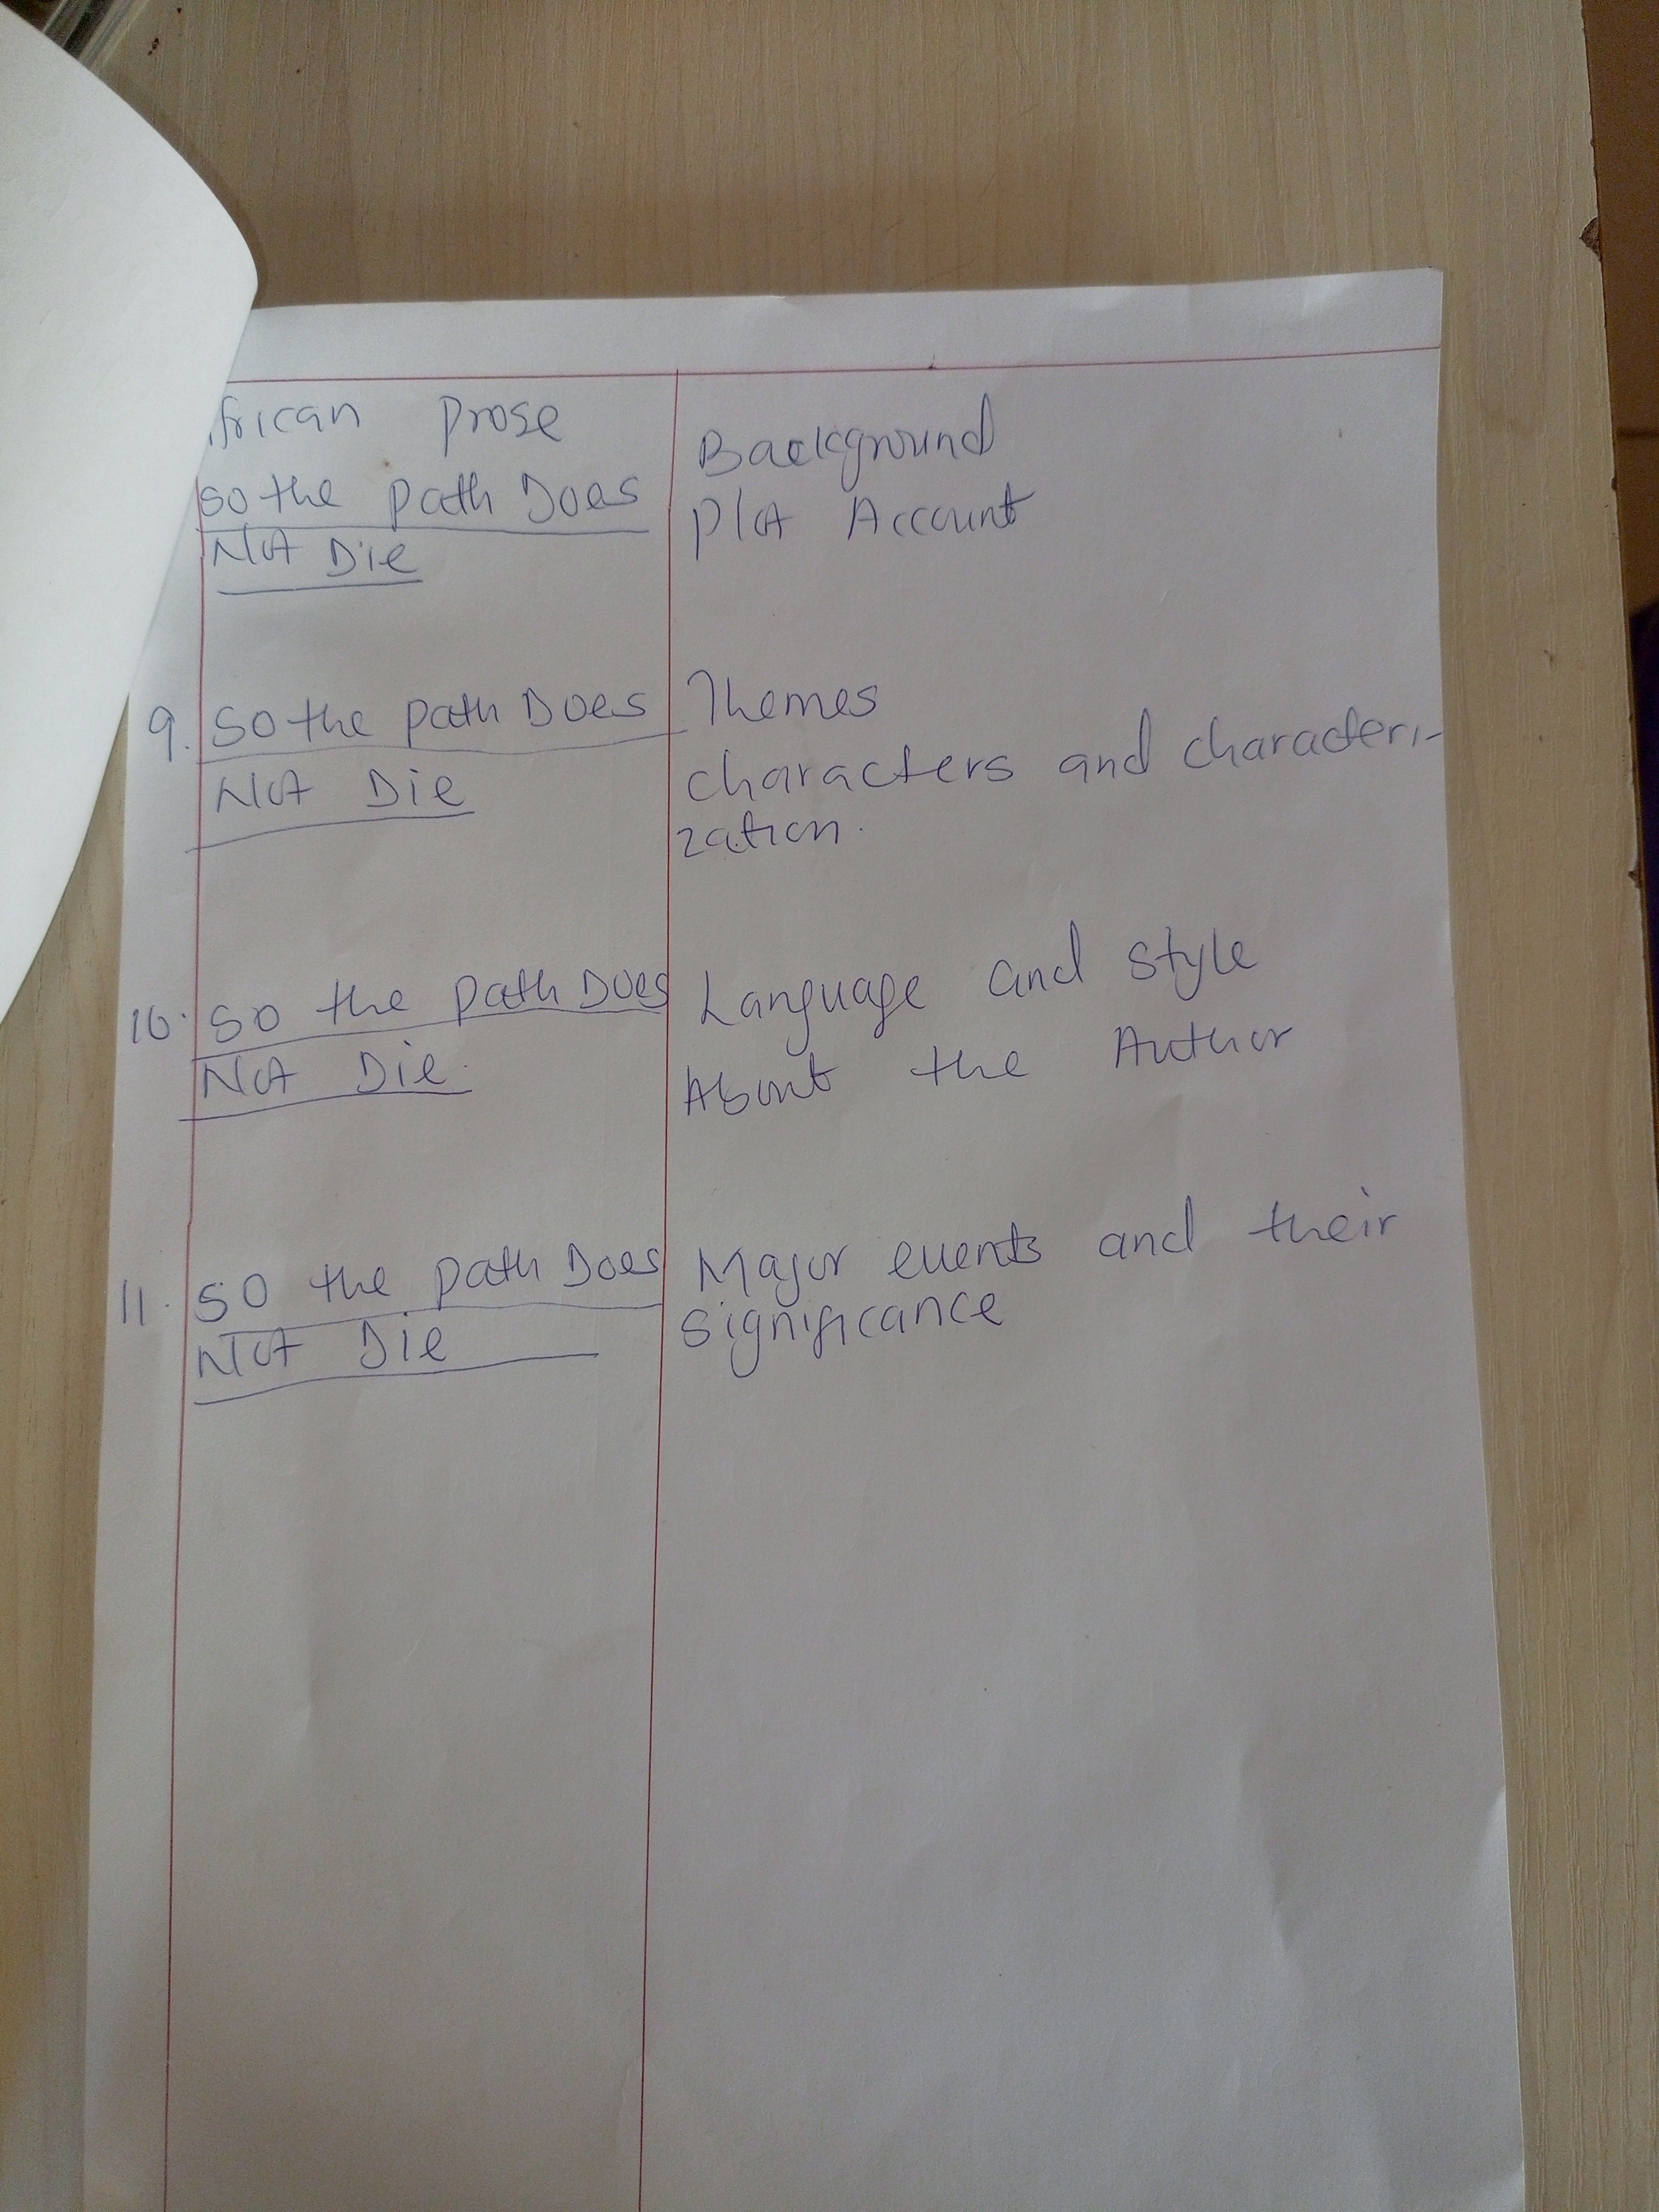 frican Prose
So the Path Does
Not Die
Background
Plot Account
9. So the Path Does
Not Die
Themes
Characters and characteri-
zation.
10. So the Path Does
Not Die.
Language and style
About the Author
11. So the Path Does
Not Die
Major events and their
significance